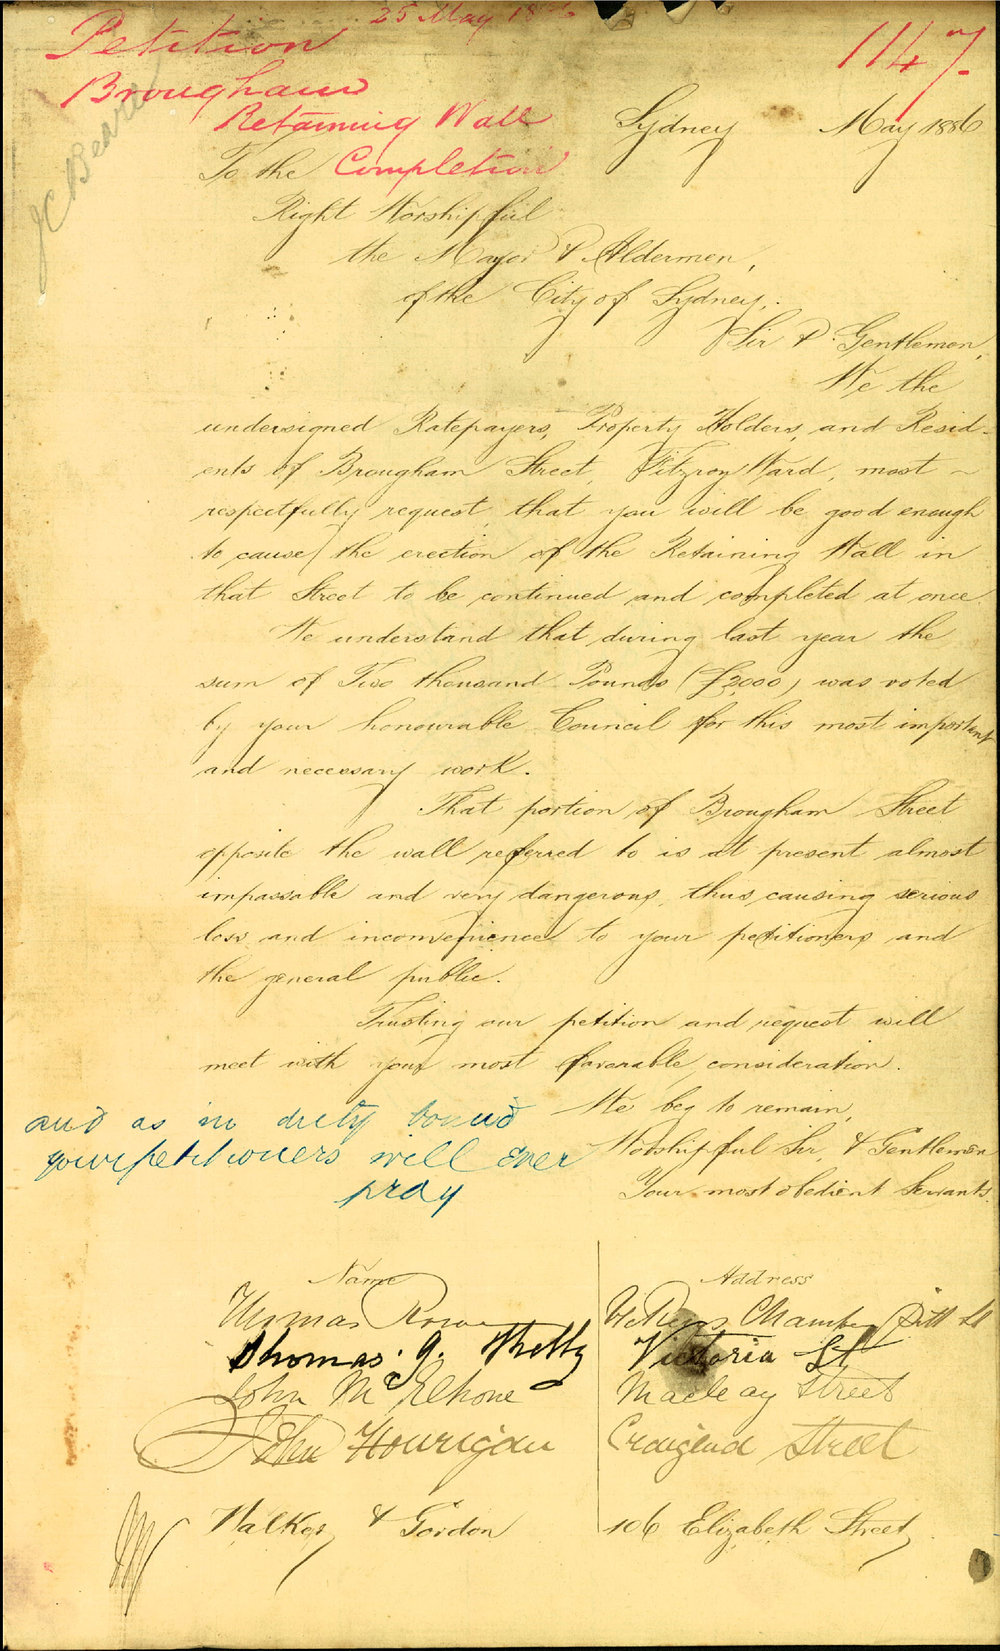 25 May 18
Petition
1147
Brougham
Retaining Wall
Sydney May 1886
To the Completion
Right Worshipful
the Mayor & Aldermen,
of the City of Sydney.
Sir & Gentlemen,
We the
undersigned Ratepayers, Property Holders, and Resid-
ents of Brougham Street, Fitzroy Ward, most
respectfully request, that you will be good enough
to cause the erection of the Retaining Wall in
that Street to be continued and completed at once.
We understand that during last year the
sum of Two thousand Pounds (£2000) was voted
by your honourable Council for this most important
and necessary work.
That portion of Brougham Street
opposite the wall referred to is at present almost
impassable and very dangerous, thus causing serious
loss and inconvenience to your petitioners and
the general public.
Trusting our petition and request will
meet with your most favorable consideration.
We beg to remain,
Worshipful Sir, & Gentlemen
Your most obedient Servants.
and as in duty bound
your petitioners will ever
pray
Name Address
Thomas Rowe Chambers Pitt St
Thomas Victoria St
John McElhone Macleay Street
John Hourigan Craigend Street
Walker & Gordon 106 Elizabeth Street